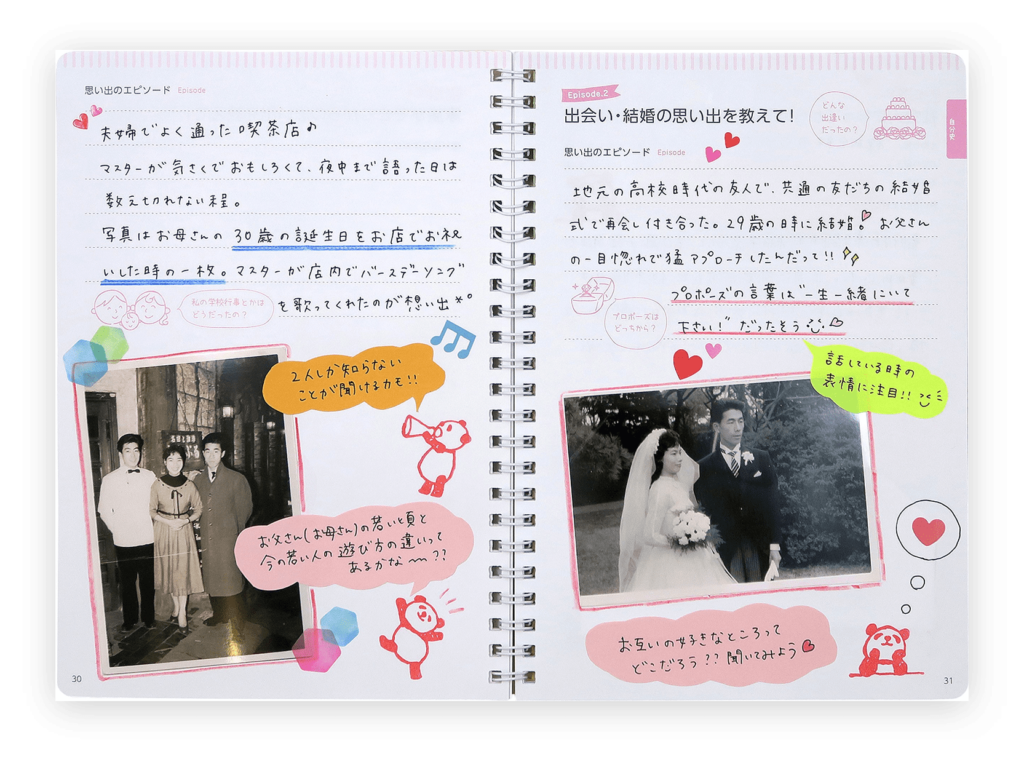 思い出のエピソード Episode
夫婦でよく通った喫茶店♪
マスターが気さくでおもしろくて、夜中まで語った日は
数え切れない程。
写真はお母さんの30歳の誕生日をお店でお祝
いした時の一枚。マスターが店内でバースデーソング
を歌ってくれたのが想い出
私の学校行事とかは
どうだったの？
2人しか知らない
ことが聞けるカモ!!
お父さん(お母さん)の若い頃と
今の若い人の遊び方の違いって
あるかな〜??
30
Episode.2
出会い・結婚の思い出を教えて!
どんな
出逢い
だったの？
自分史
思い出のエピソード Episode
地元の高校時代の友人で、共通の友だちの結婚
式で再会し付き合った。29歳の時に結婚。お父さん
の一目惚れで猛アプローチしたんだって!!
プロポーズの言葉は"一生一緒にいて
下さい!"だったそう
プロポーズは
どっちから？
話している時の
表情に注目!!
お互いの好きなところって
どこだろう??聞いてみよう
31